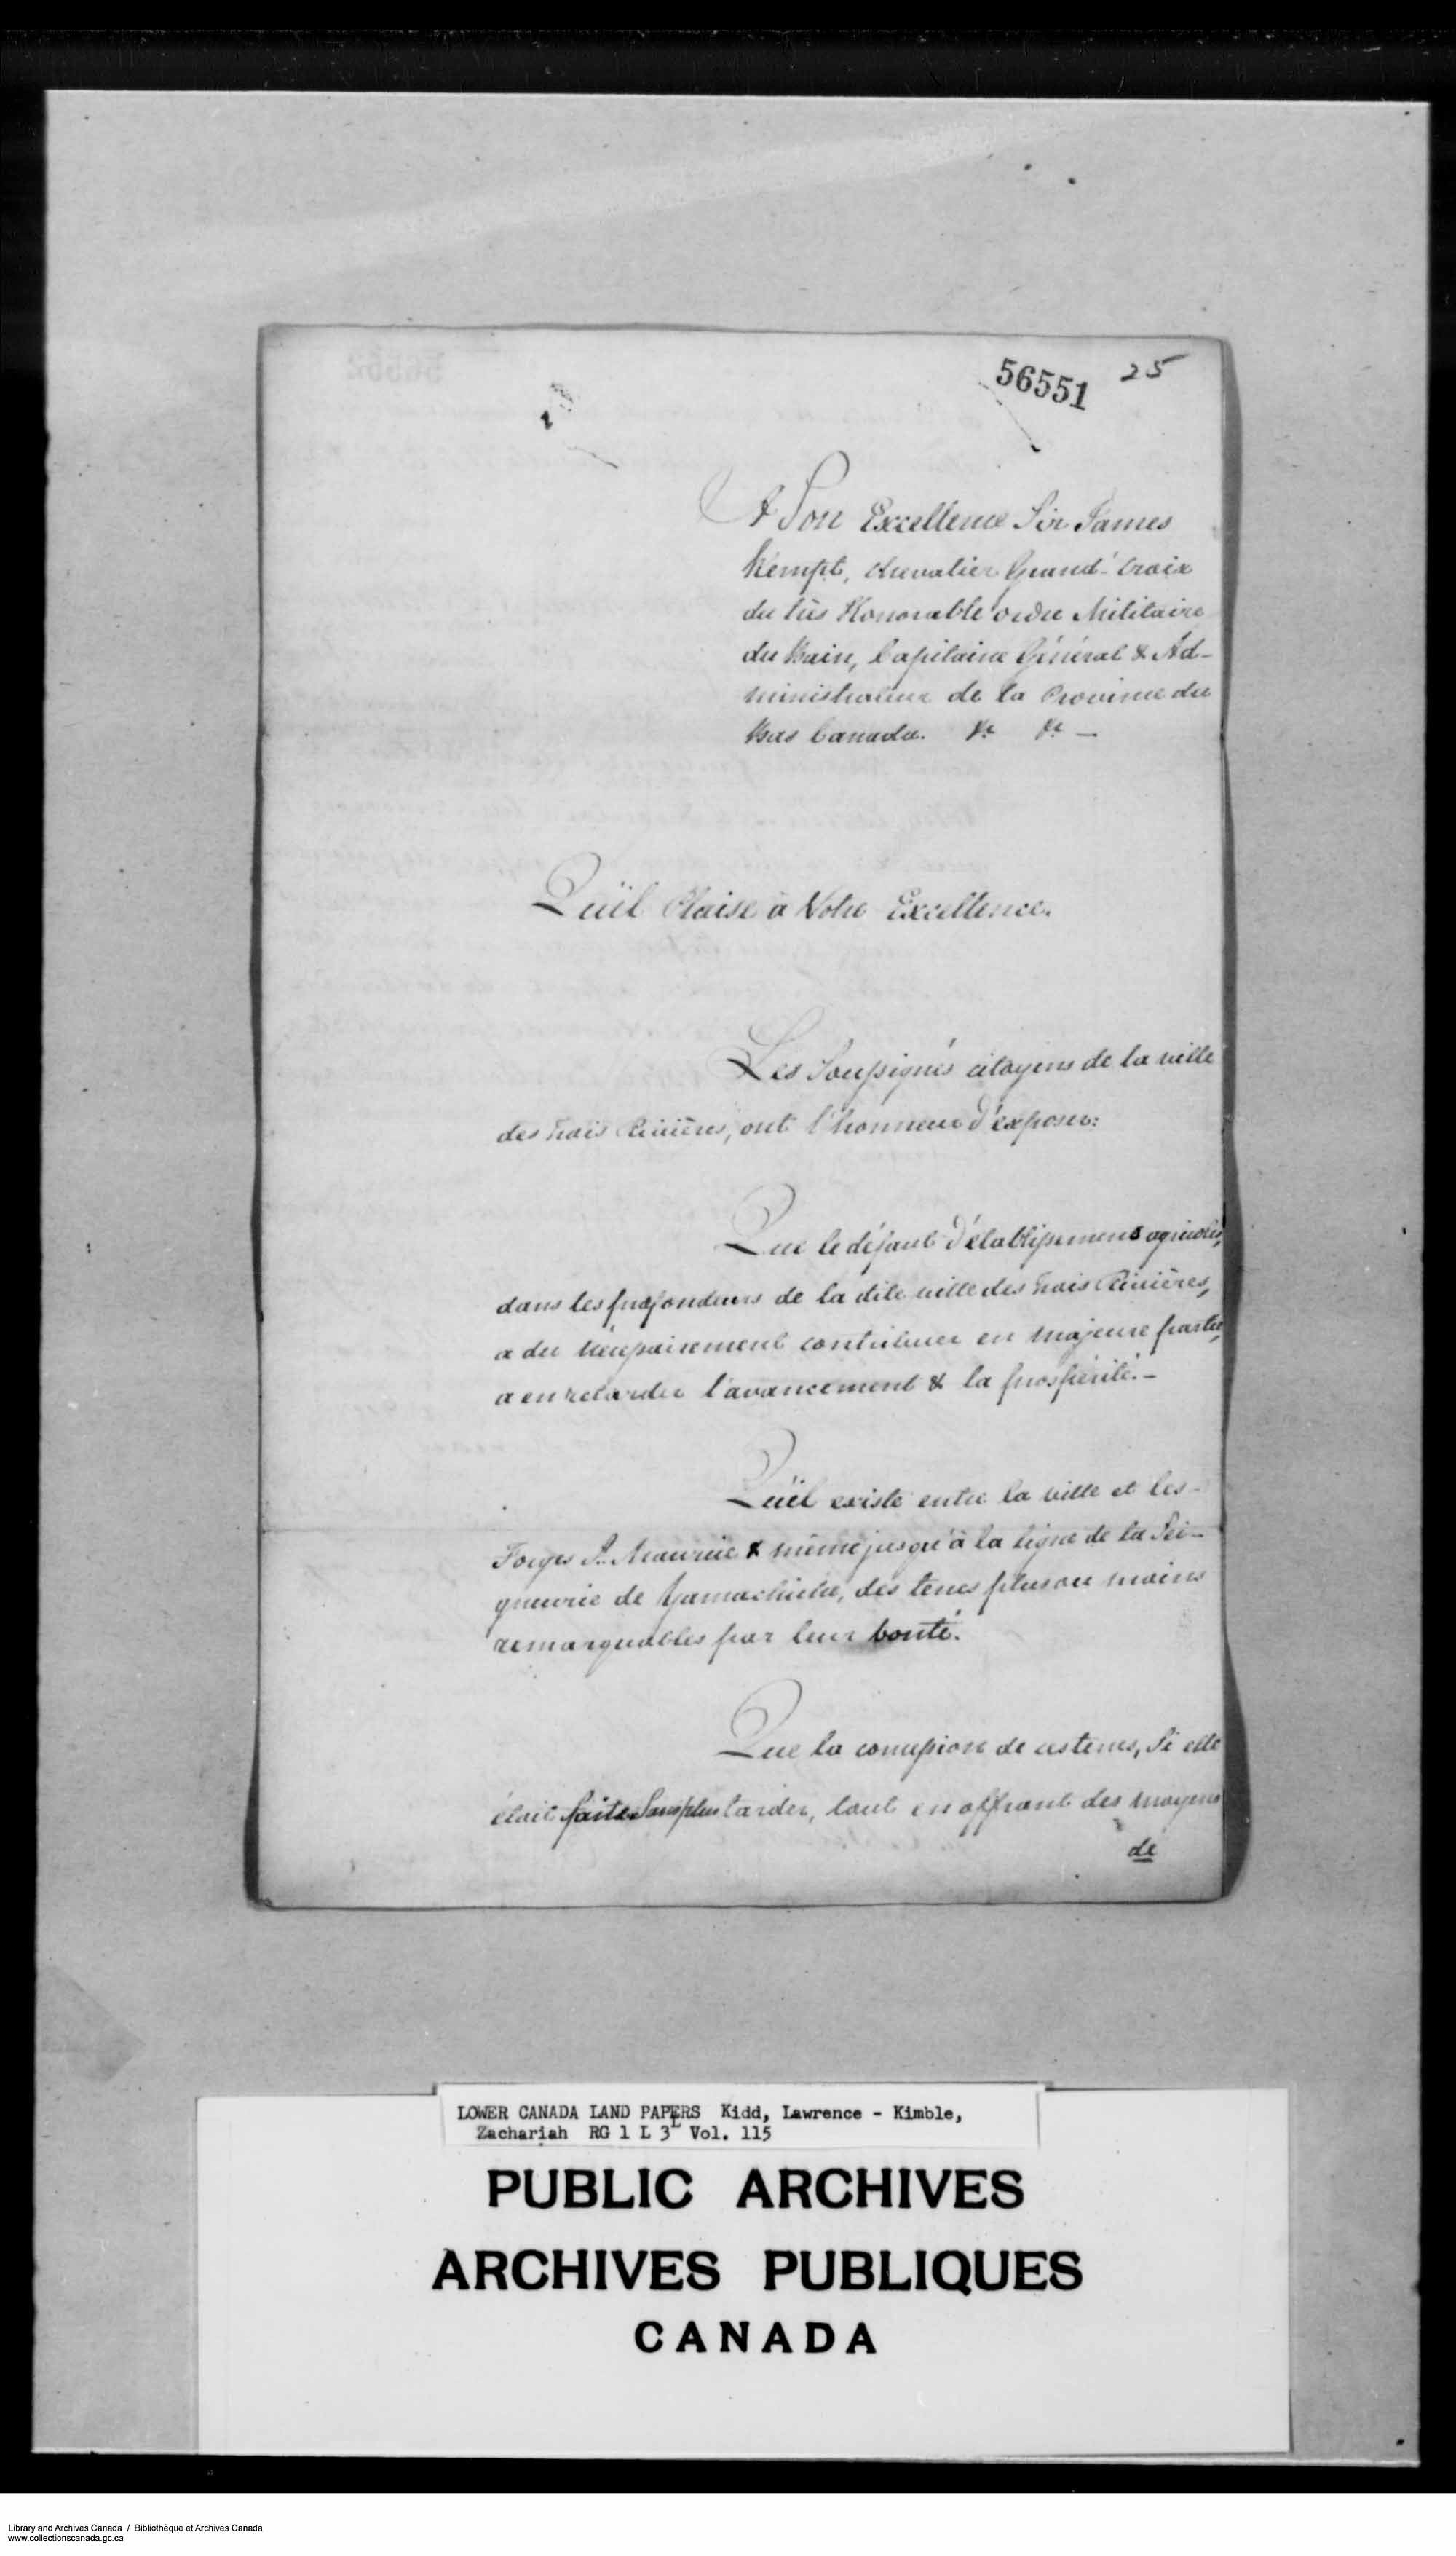 56551 25
A Son Excellence Sir James
Kempt, chevalier Grand-Croix
du très Honorable ordre Militaire
du Bain, Capitaine Général & Ad-
ministrateur de la Province du
Bas Canada. &c &c —
Qu'il Plaise à Votre Excellence.
Les Soussignés citoyens de la ville
des trois Rivières, ont l'honneur d'exposer:
Que le défaut d'établissemens agricoles,
dans les profondeurs de la dite ville des trois Rivières,
a du nécessairement contribuer en majeure partie,
a en retarder l'avancement & la prospérité.—
Qu'il existe entre la ville et les
Forges St. Maurice & même jusqu'à la ligne de la Sei-
gneurie de Yamachiche, des terres plus ou moins
remarquables par leur bonté.
Que la concession de ces terres, Si elle
était faite Sans plus tarder, tout en offrant des moyens
de
LOWER CANADA LAND PAPERS Kidd, Lawrence - Kimble,
Zachariah RG 1 L 3L Vol. 115
PUBLIC ARCHIVES
ARCHIVES PUBLIQUES
CANADA
Library and Archives Canada / Bibliothèque et Archives Canada
www.collectionscanada.gc.ca